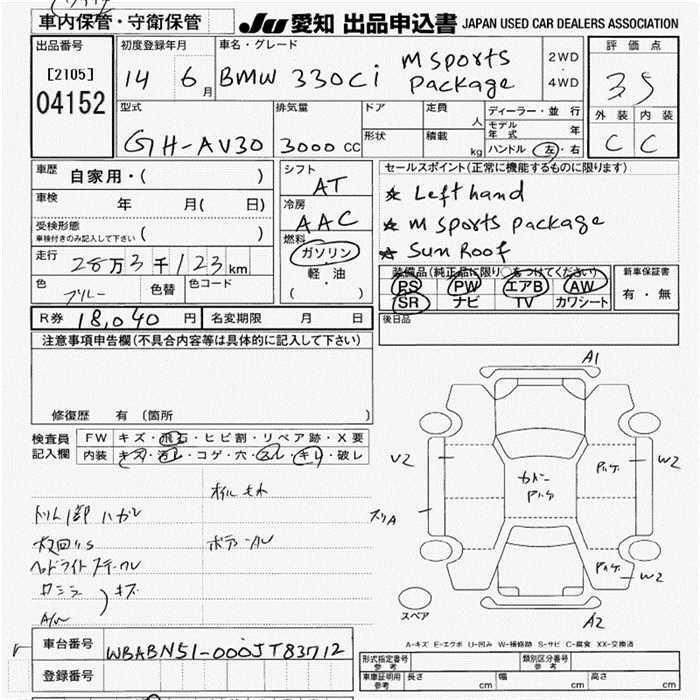 車内保管・守衛保管
JU 愛知 出品申込書 JAPAN USED CAR DEALERS ASSOCIATION
出品番号
[2105]
04152
初度登録年月
14 6月
車名・グレード
BMW 330Ci M sports Package
2WD
・
4WD
評価点
3.5
外装 内装
C C
型式
GH-AV30
排気量
3000 CC
ドア
形状
定員 人
積載 kg
ディーラー・並行
モデル年式 年
ハンドル 左・右
車歴 自家用・( )
車検 年 月( 日)
受検形態
車検付きのみ記入して下さい ( )
走行 28万3千123km
色 色替 色コード
シフト
AT
冷房
AAC
燃料
ガソリン
軽・油
( )
セールスポイント(正常に機能するものに限ります)
★ Left hand
★ M sports package
★ Sun Roof
装備品(純正品に限り○をつけてください)
PS PW エアB AW
SR ナビ TV カワシート
新車保証書
有・無
R券 18,040 円 名変期限 月 日
後日品
注意事項申告欄(不具合内容等は具体的に記入して下さい)
修復歴 有(箇所 )
検査員記入欄
FW キズ・飛石・ヒビ割・リペア跡・X要
内装 キズ・汚レ・コゲ・穴・スレ・キレ・破レ
ヘッドライト
キズ
A/W
A1
V2
W2
スリA
W2
A2
スペア
A-キズ E-エクボ U-凹み W-補修跡 S-サビ C-腐食 XX-交換済
車台番号 WBABN51-000JT83712
登録番号
形式指定番号 参考
類別区分番号 参考
車庫証明用 参考 長さ cm 幅 cm 高さ cm